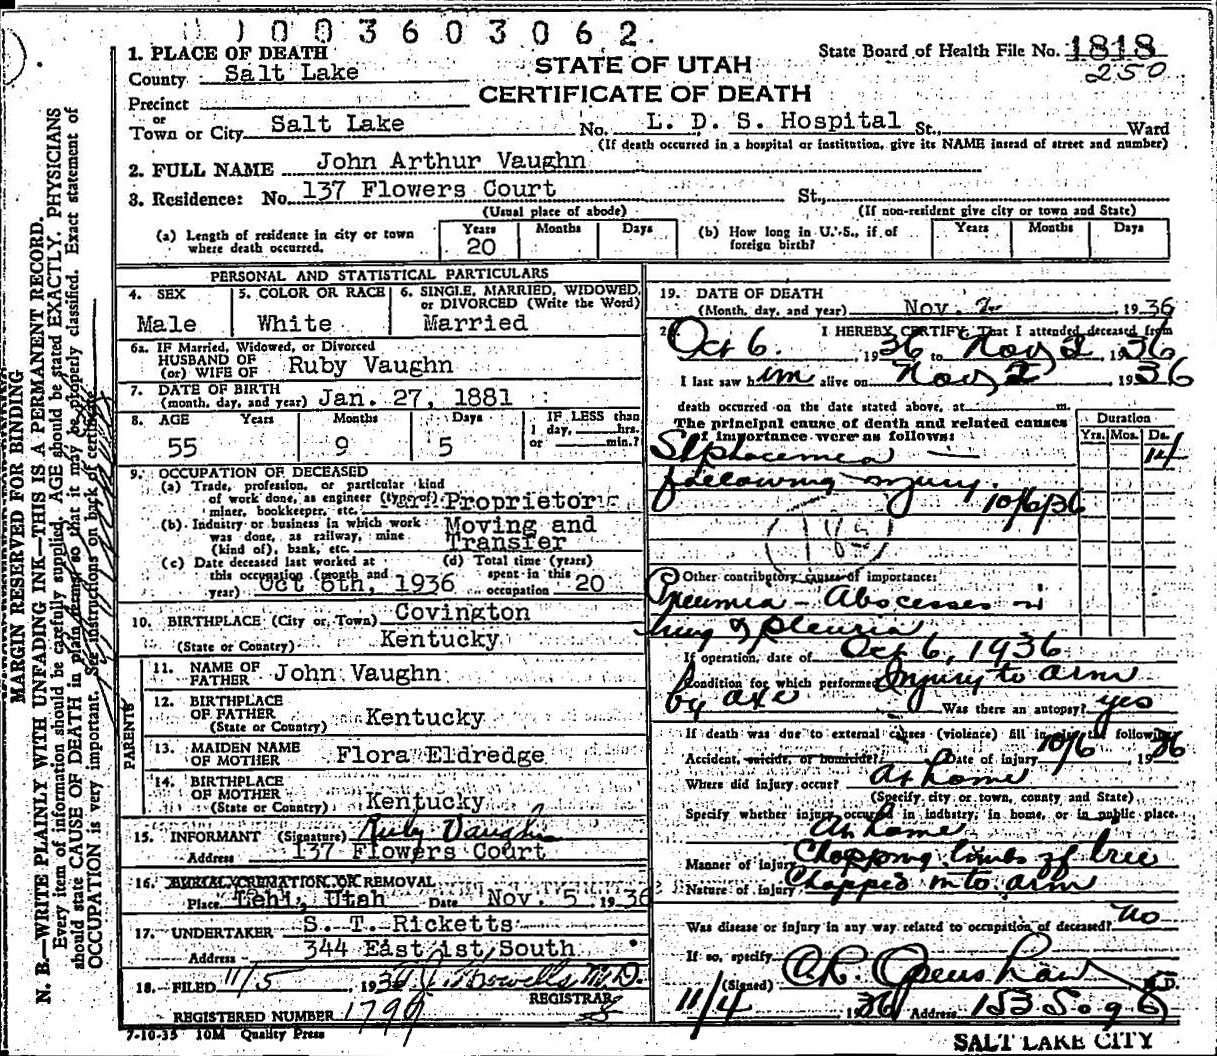 1003603062.
1. PLACE OF DEATH
State Board of Health File No. 1818
County Salt Lake
STATE OF UTAH
250
Precinct
CERTIFICATE OF DEATH
or
Town or City Salt Lake No. L. D. S. Hospital St., Ward
(If death occurred in a hospital or institution, give its NAME instead of street and number)
2. FULL NAME John Arthur Vaughn
3. Residence: No. 137 Flowers Court St.,
(Usual place of abode) (If non-resident give city or town and State)
(a) Length of residence in city or town where death occurred. Years 20 Months Days
(b) How long in U. S., if of foreign birth? Years Months Days
PERSONAL AND STATISTICAL PARTICULARS
4. SEX Male
5. COLOR OR RACE White
6. SINGLE, MARRIED, WIDOWED, or DIVORCED (Write the Word) Married
6a. IF Married, Widowed, or Divorced
HUSBAND OF
(or) WIFE OF Ruby Vaughn
7. DATE OF BIRTH
(month, day, and year) Jan. 27, 1881
8. AGE Years 55 Months 9 Days 5
IF LESS than
1 day, hrs.
or min.?
9. OCCUPATION OF DECEASED
(a) Trade, profession, or particular kind
of work done, as engineer (type of)
miner, bookkeeper, etc. Proprietor
(b) Industry or business in which work
was done, as railway, mine
(kind of), bank, etc. Moving and Transfer
(c) Date deceased last worked at
this occupation (month and
year) Oct 6th, 1936
(d) Total time (years)
spent in this
occupation 20
10. BIRTHPLACE (City or Town) Covington
(State or Country) Kentucky
PARENTS
11. NAME OF FATHER John Vaughn
12. BIRTHPLACE OF FATHER
(State or Country) Kentucky
13. MAIDEN NAME OF MOTHER Flora Eldredge
14. BIRTHPLACE OF MOTHER
(State or Country) Kentucky
15. INFORMANT (Signature) Ruby Vaughn
Address 137 Flowers Court
16. BURIAL, CREMATION OR REMOVAL
Place Lehi, Utah Date Nov. 5 1936
17. UNDERTAKER S. T. Ricketts
Address 344 East 1st South
18. FILED 11/5, 1936 M. D.
REGISTRAR
REGISTERED NUMBER 1799
7-10-35 10M Quality Press
19. DATE OF DEATH
(Month, day, and year) Nov. 2, 1936
I HEREBY CERTIFY, That I attended deceased from
Oct 6, 1936 to Nov 2, 1936
I last saw him alive on Nov 2, 1936
death occurred on the date stated above, at m.
The principal cause of death and related causes
of importance were as follows:
Duration
Yrs. Mos. Ds.
14
following injury.
10/6/36
Other contributory causes of importance:
Abscesses in
lung & pleura
If operation, date of Oct 6, 1936
Condition for which performed Injury to arm
by axe Was there an autopsy? yes
If death was due to external causes (violence) fill in the following:
Accident, suicide, or homicide? Date of injury 10/6 1936
Where did injury occur? At home
(Specify city or town, county and State)
Specify whether injury occurred in industry, in home, or in public place.
At home
Manner of injury Chopping limbs of tree
Nature of injury Chopped into arm
Was disease or injury in any way related to occupation of deceased? No
If so, specify
(Signed) M.D.
11/4 1936 Address
SALT LAKE CITY
MARGIN RESERVED FOR BINDING
N. B.—WRITE PLAINLY WITH UNFADING INK—THIS IS A PERMANENT RECORD.
Every item of information should be carefully supplied. AGE should be stated EXACTLY. PHYSICIANS
should state CAUSE OF DEATH in plain terms, so that it may be properly classified. Exact statement of
OCCUPATION is very important. See instructions on back of certificate